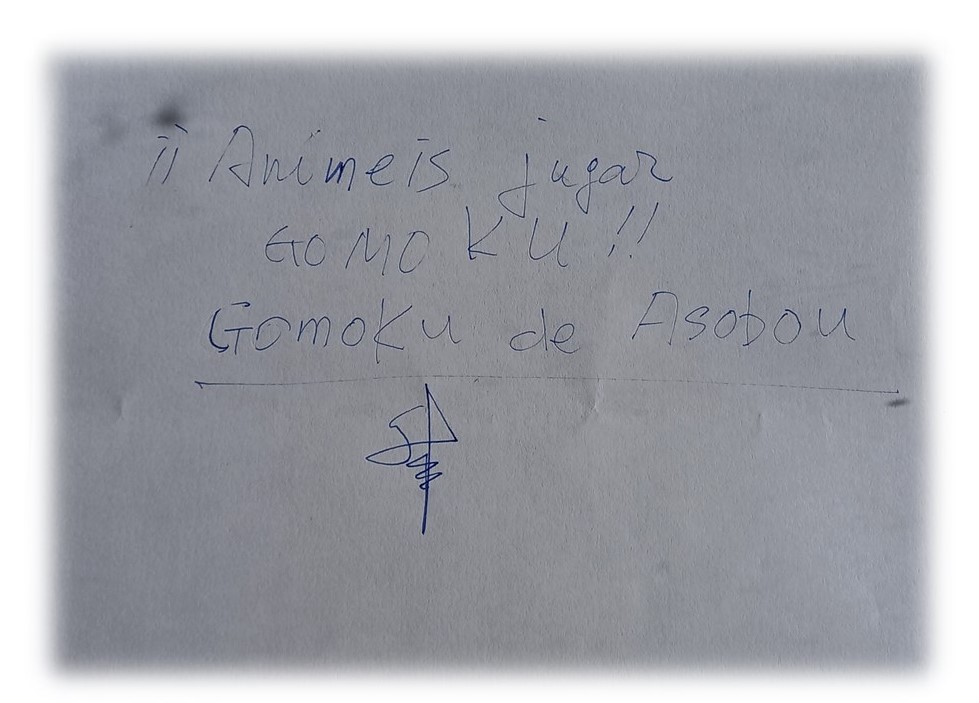 ¡¡ Animeis jugar
GOMOKU!!
Gomoku de Asobou